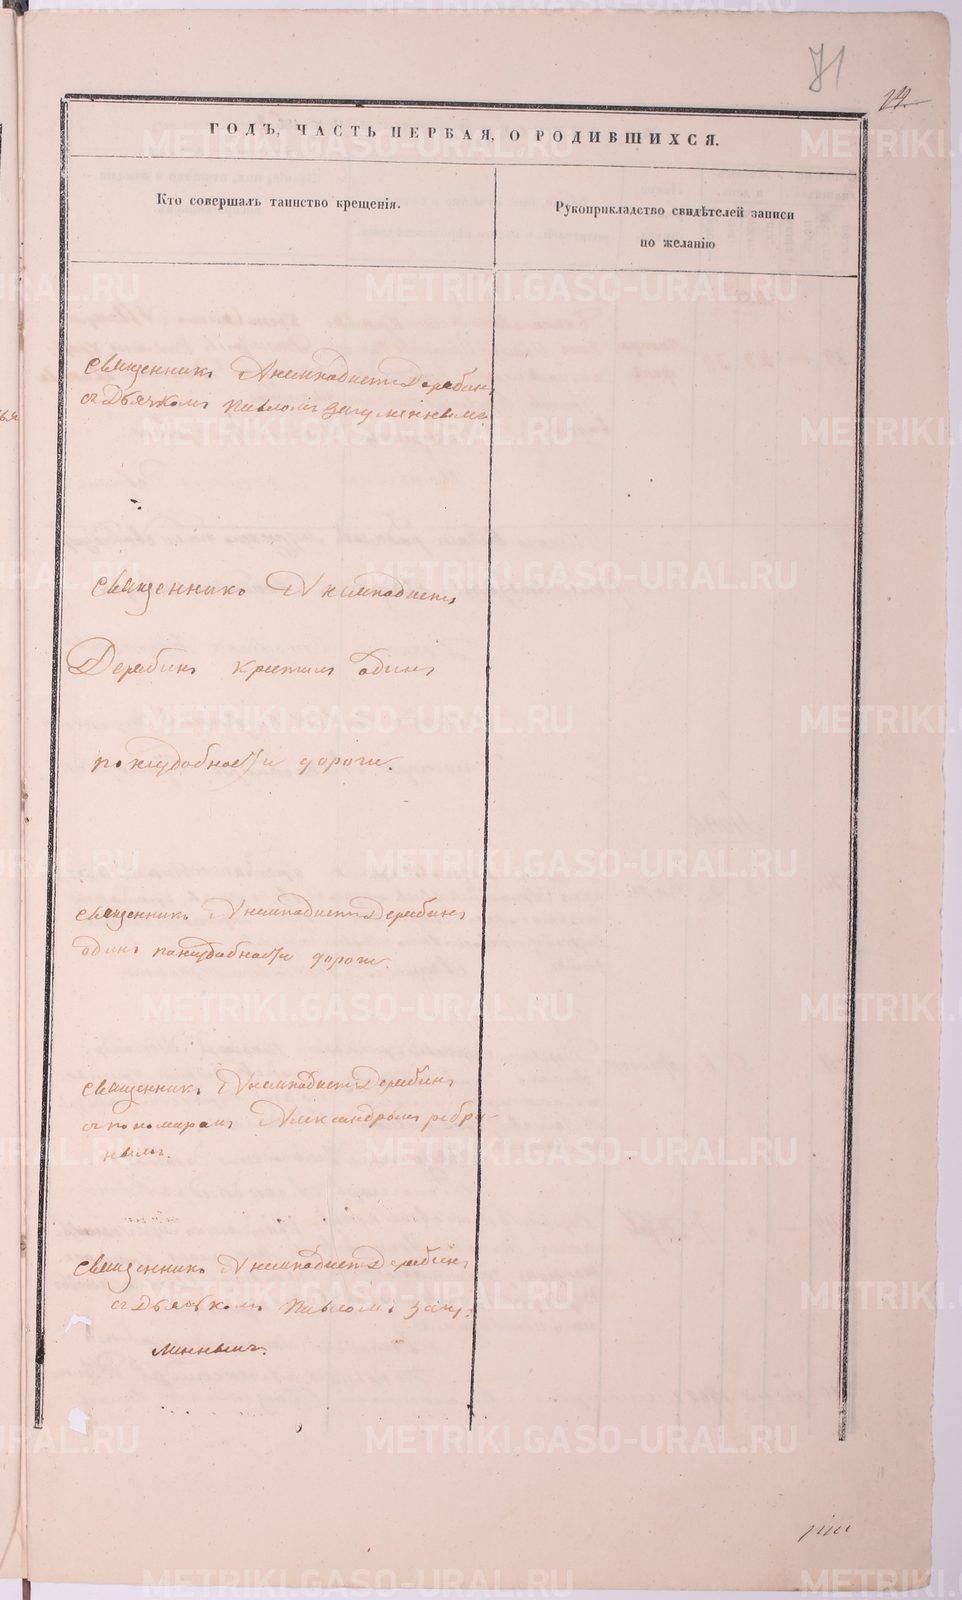 71
12
ГОДЪ, ЧАСТЬ ПЕРВАЯ, О РОДИВШИХСЯ.
Кто совершалъ таинство крещенія.
Рукоприкладство свидѣтелей записи
по желанію
священникъ Анемподистъ Дерябинъ
съ Дьячкомъ Павломъ Загуменнымъ.
священникъ Анемподистъ
Дерябинъ крестилъ одинъ
понеудобности дороги.
священникъ Анемподистъ Дерябинъ
одинъ понеудобности дороги.
священникъ Анемподистъ Дерябинъ
съ пономаремъ Александромъ
священникъ Анемподистъ Дерябинъ
съ Дьячкомъ Павломъ Загу-
меннымъ.
METRIKI.GASO-URAL.RU